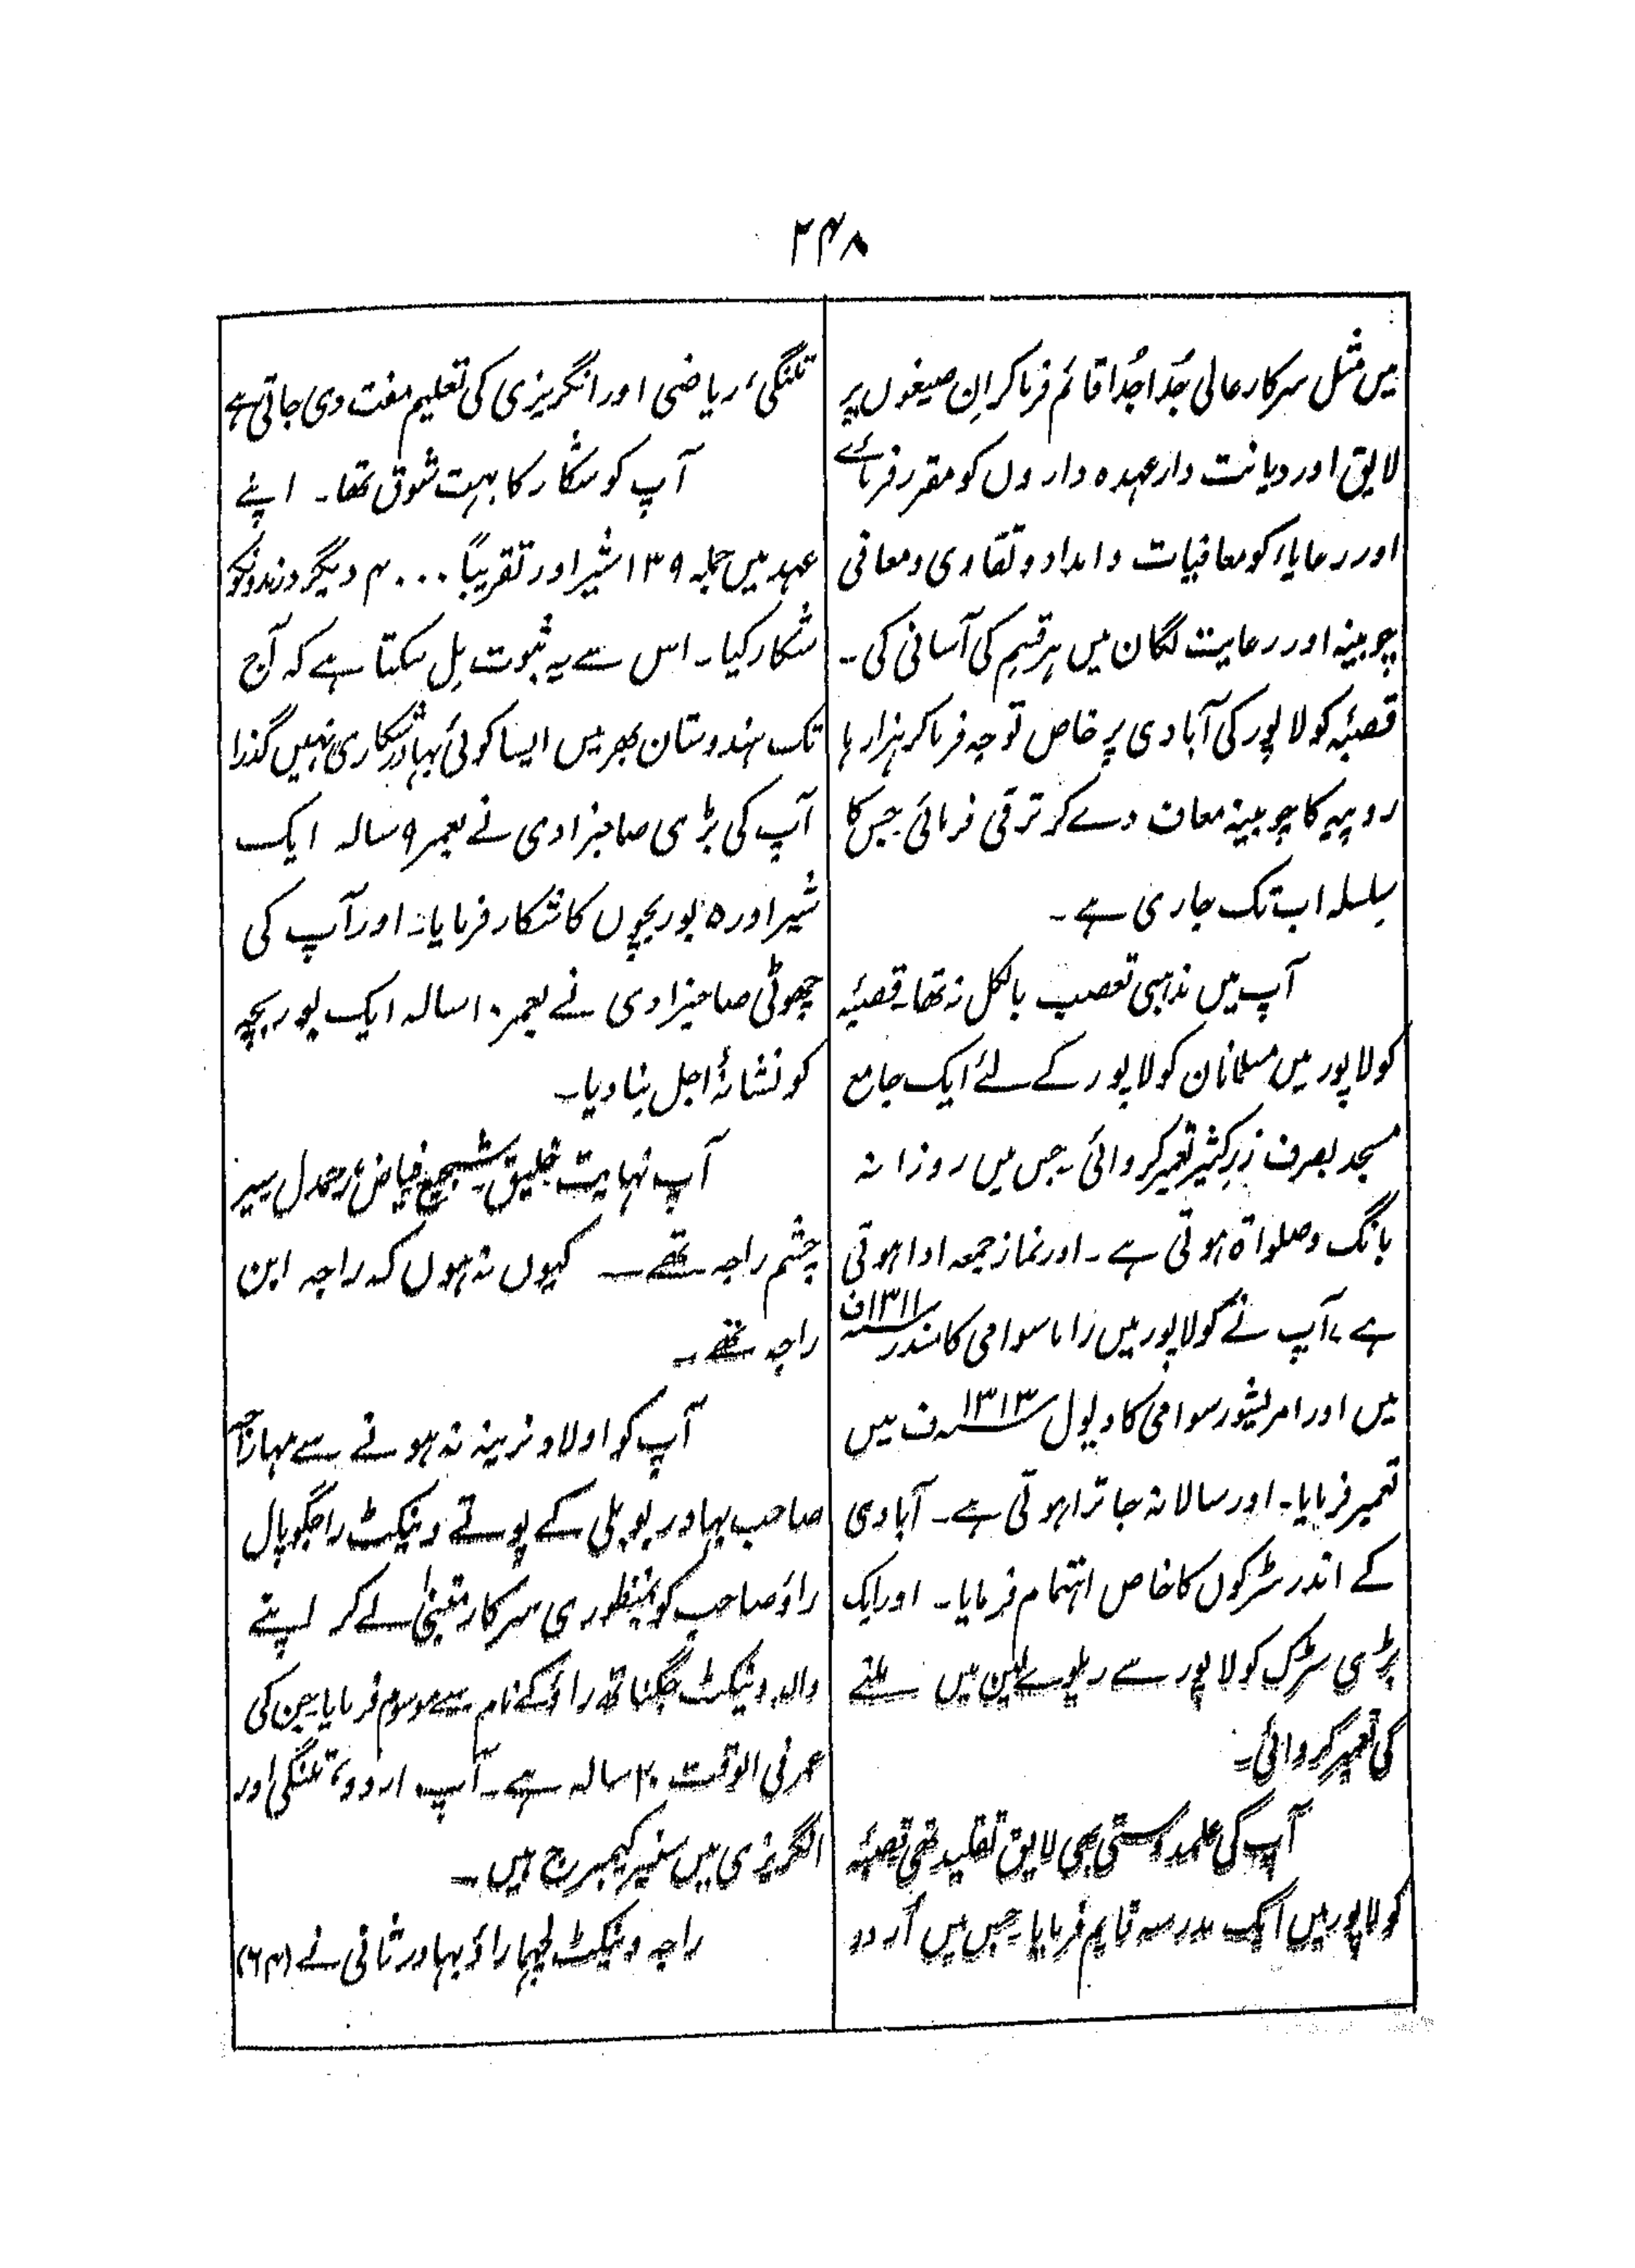 ۲۴۸
میں مثل سرکار عالی جُدا جُدا قائم فرما کر اِن صیغوں پر
لایق اور دیانت دار عہدہ داروں کو مقرر فرمائے
اور رعایا کو معافیات و امداد و تقاوی و معافی
چوبینہ اور رعایت لگان میں ہر قسم کی آسانی کی۔
قصبۂ کولاپور کی آبادی پر خاص توجہ فرما کر ہزار ہا
روپیہ کا چوبینہ معاف دے کر ترقی فرمائی جس کا
سلسلہ اب تک جاری ہے۔
آپ میں مذہبی تعصب بالکل نہ تھا۔ قصبۂ
کولاپور میں مسلمانان کولاپور کے لئے ایک جامع
مسجد بصرف زرِ کثیر تعمیر کروائی۔ جس میں روزانہ
بانگ و صلواۃ ہوتی ہے۔ اور نماز جمعہ ادا ہوتی
ہے، آپ نے کولاپور میں راما سوامی کا مندر ۱۳۱۱ف
میں اور امریشور سوامی کا دیول ۱۳۱۳ف میں
تعمیر فرمایا۔ اور سالانہ جاترا ہوتی ہے۔ آبادی
کے اندر سڑکوں کا خاص اہتمام فرمایا۔ اور ایک
بڑی سڑک کولاپور سے ریلوے لین میں ملنے
کی تعمیر کروائی۔
آپ کی علمدوستی بھی لایق تقلید تھی قصبۂ
کولاپور میں ایک مدرسہ قایم فرمایا۔ جس میں اُردو
تلنگی، ریاضی اور انگریزی کی تعلیم مفت دی جاتی ہے
آپ کو شکار کا بہت شوق تھا۔ اپنے
عہد میں جملہ ۱۳۹ شیر اور تقریباً ۴۰۰۰ دیگر درندونکو
شکار کیا۔ اس سے یہ ثبوت مِل سکتا ہے کہ آج
تک ہندوستان بھر میں ایسا کوئی بہادر شکاری نہیں گذرا
آپ کی بڑی صاحبزادی نے بعمر ۹ سالہ ایک
شیر اور ۵ بوربچوں کا شکار فرمایا۔ اور آپ کی
چھوٹی صاحبزادی نے بعمر ۱۰ سالہ ایک بوربچہ
کو نشانۂ اجل بنا دیا۔
آپ نہایت خلیق، شجیع، فیاض، رحمدل سیر
چشم راجہ تھے۔ کیوں نہ ہوں کہ راجہ ابن
راجہ تھے۔
آپ کو اولاد نرینہ نہ ہونے سے مہاراجہ
صاحب بہادر بوبلی کے پوتے وینکٹ راجگوپال
راؤ صاحب کو بمنظوری سرکار متبنیٰ لے کر اپنے
والد وینکٹ جگناتھ راؤ کے نام سے موسوم فرمایا۔ جن کی
عمر فی الوقت ۲۰ سالہ ہے۔ آپ اردو، تلنگی اور
انگریزی میں سنیر کیمبرج ہیں۔
راجہ وینکٹ لچھما راؤ بہادر ثانی نے (۴۶)